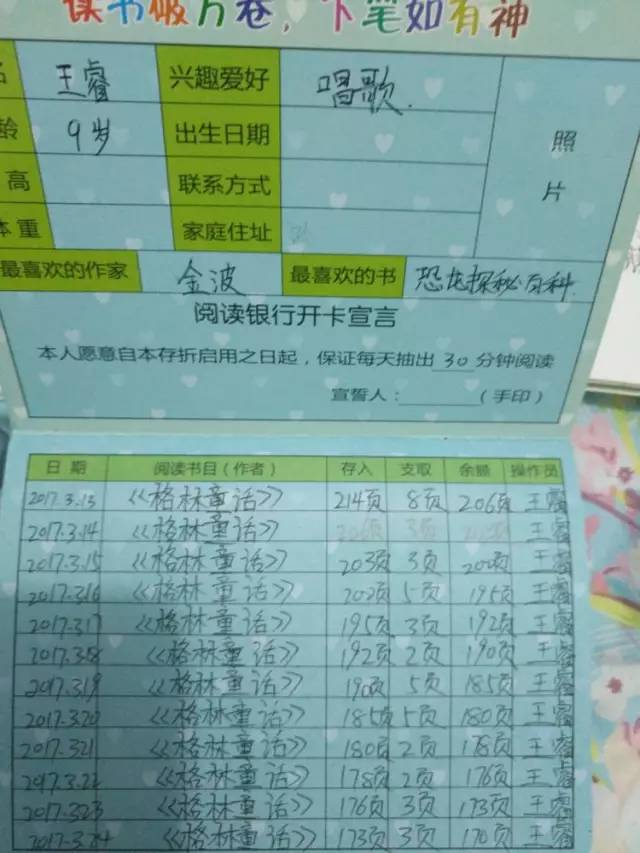 读书破万卷，下笔如有神
名 王睿 兴趣爱好 唱歌. 照片
龄 9岁 出生日期
高 联系方式
体重 家庭住址
最喜欢的作家 金波 最喜欢的书 恐龙探秘百科.
阅读银行开卡宣言
本人愿意自本存折启用之日起，保证每天抽出 30 分钟阅读
宣誓人：________（手印）
日期 阅读书目（作者） 存入 支取 余额 操作员
2017.3.13 《格林童话》 214页 8页 206页 王睿
2017.3.14 《格林童话》 206页 3页 王睿
2017.3.15 《格林童话》 203页 3页 200页 王睿
2017.3.16 《格林童话》 200页 5页 195页 王睿
2017.3.17 《格林童话》 195页 3页 192页 王睿
2017.3.18 《格林童话》 192页 2页 190页 王睿
2017.3.19 《格林童话》 190页 5页 185页 王睿
2017.3.20 《格林童话》 185页 5页 180页 王睿
2017.3.21 《格林童话》 180页 2页 178页 王睿
2017.3.22 《格林童话》 178页 2页 176页 王睿
2017.3.23 《格林童话》 176页 3页 173页 王睿
2017.3.24 《格林童话》 173页 3页 170页 王睿